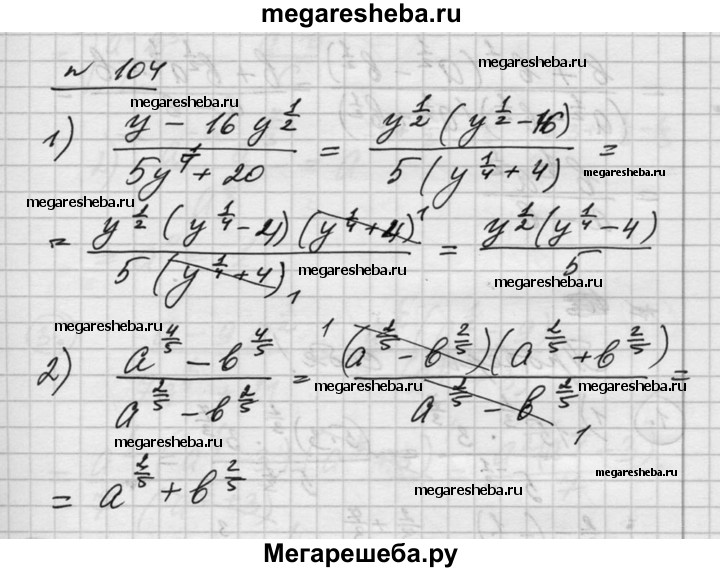 megaresheba.ru
№ 104
megaresheba.ru
megaresheba.ru
1) (y - 16 y^(1/2)) / (5y^(1/4) + 20) = (y^(1/2) (y^(1/2) - 16)) / (5 (y^(1/4) + 4)) =
megaresheba.ru
megaresheba.ru
= (y^(1/2) (y^(1/4) - 4) (y^(1/4) + 4)^1) / (5 (y^(1/4) + 4)_1) = (y^(1/2) (y^(1/4) - 4)) / 5
megaresheba.ru
megaresheba.ru
megaresheba.ru
2) (a^(4/5) - b^(4/5)) / (a^(2/5) - b^(2/5)) = (1 (a^(2/5) - b^(2/5)) (a^(2/5) + b^(2/5))) / (a^(2/5) - b^(2/5) 1) =
megaresheba.ru
megaresheba.ru
megaresheba.ru
= a^(2/5) + b^(2/5)
megaresheba.ru
megaresheba.ru
Мегарешеба.ру